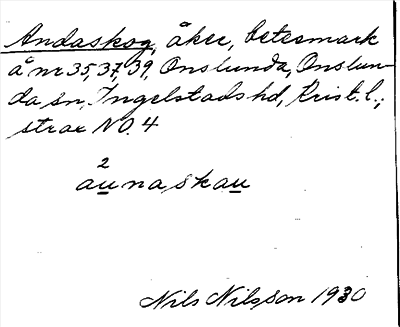 Andaskog, åker, betesmark
å nr 35, 37, 39, Onslunda, Onslun-
da sn, Ingelstads hd, Krist. l.;
strax NO. 4
2
au̲naskau̲
Nils Nilsson 1930